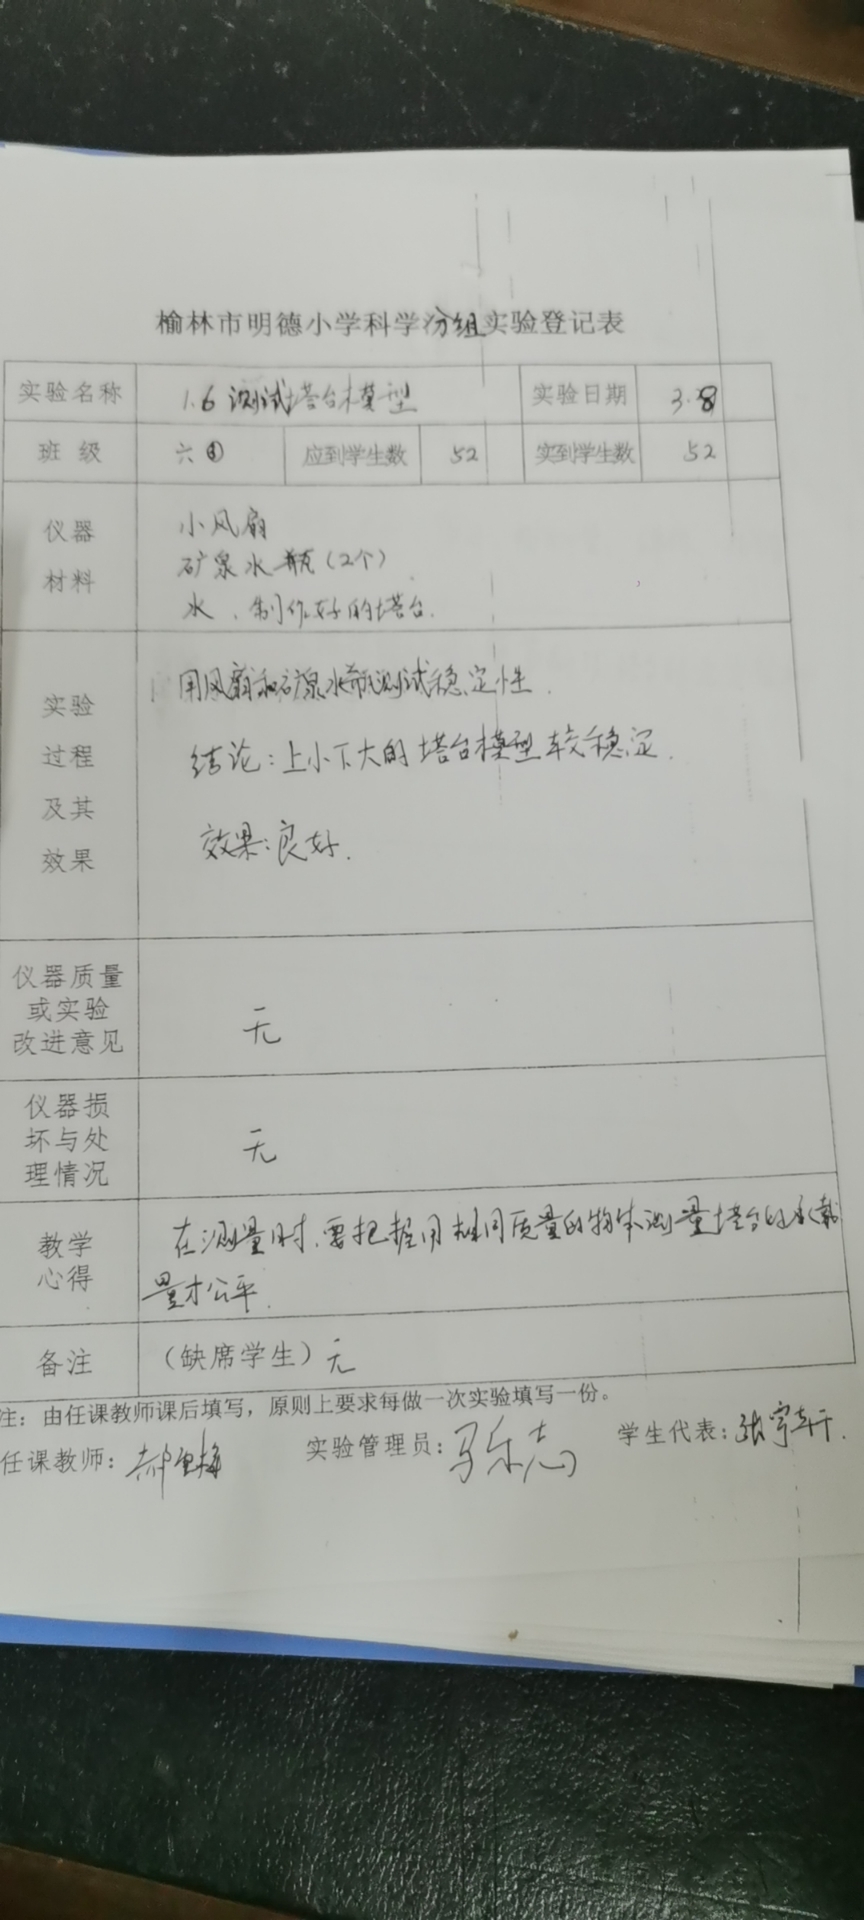 榆林市明德小学科学分组实验登记表
实验名称 1.6 测试塔台模型 实验日期 3.8
班 级 六 应到学生数 52 实到学生数 52
仪器
材料
小风扇
矿泉水瓶(2个)
水、制作好的塔台.
实验
过程
及其
效果
用风扇和矿泉水瓶测试稳定性.
结论:上小下大的塔台模型较稳定.
效果:良好.
仪器质量
或实验
改进意见
无
仪器损
坏与处
理情况
无
教学
心得
在测量时.要把握用相同质量的物体测量塔台的承载
量才公平.
备注 (缺席学生) 无
注: 由任课教师课后填写,原则上要求每做一次实验填写一份。
任课教师: 实验管理员: 学生代表: 张宇轩.